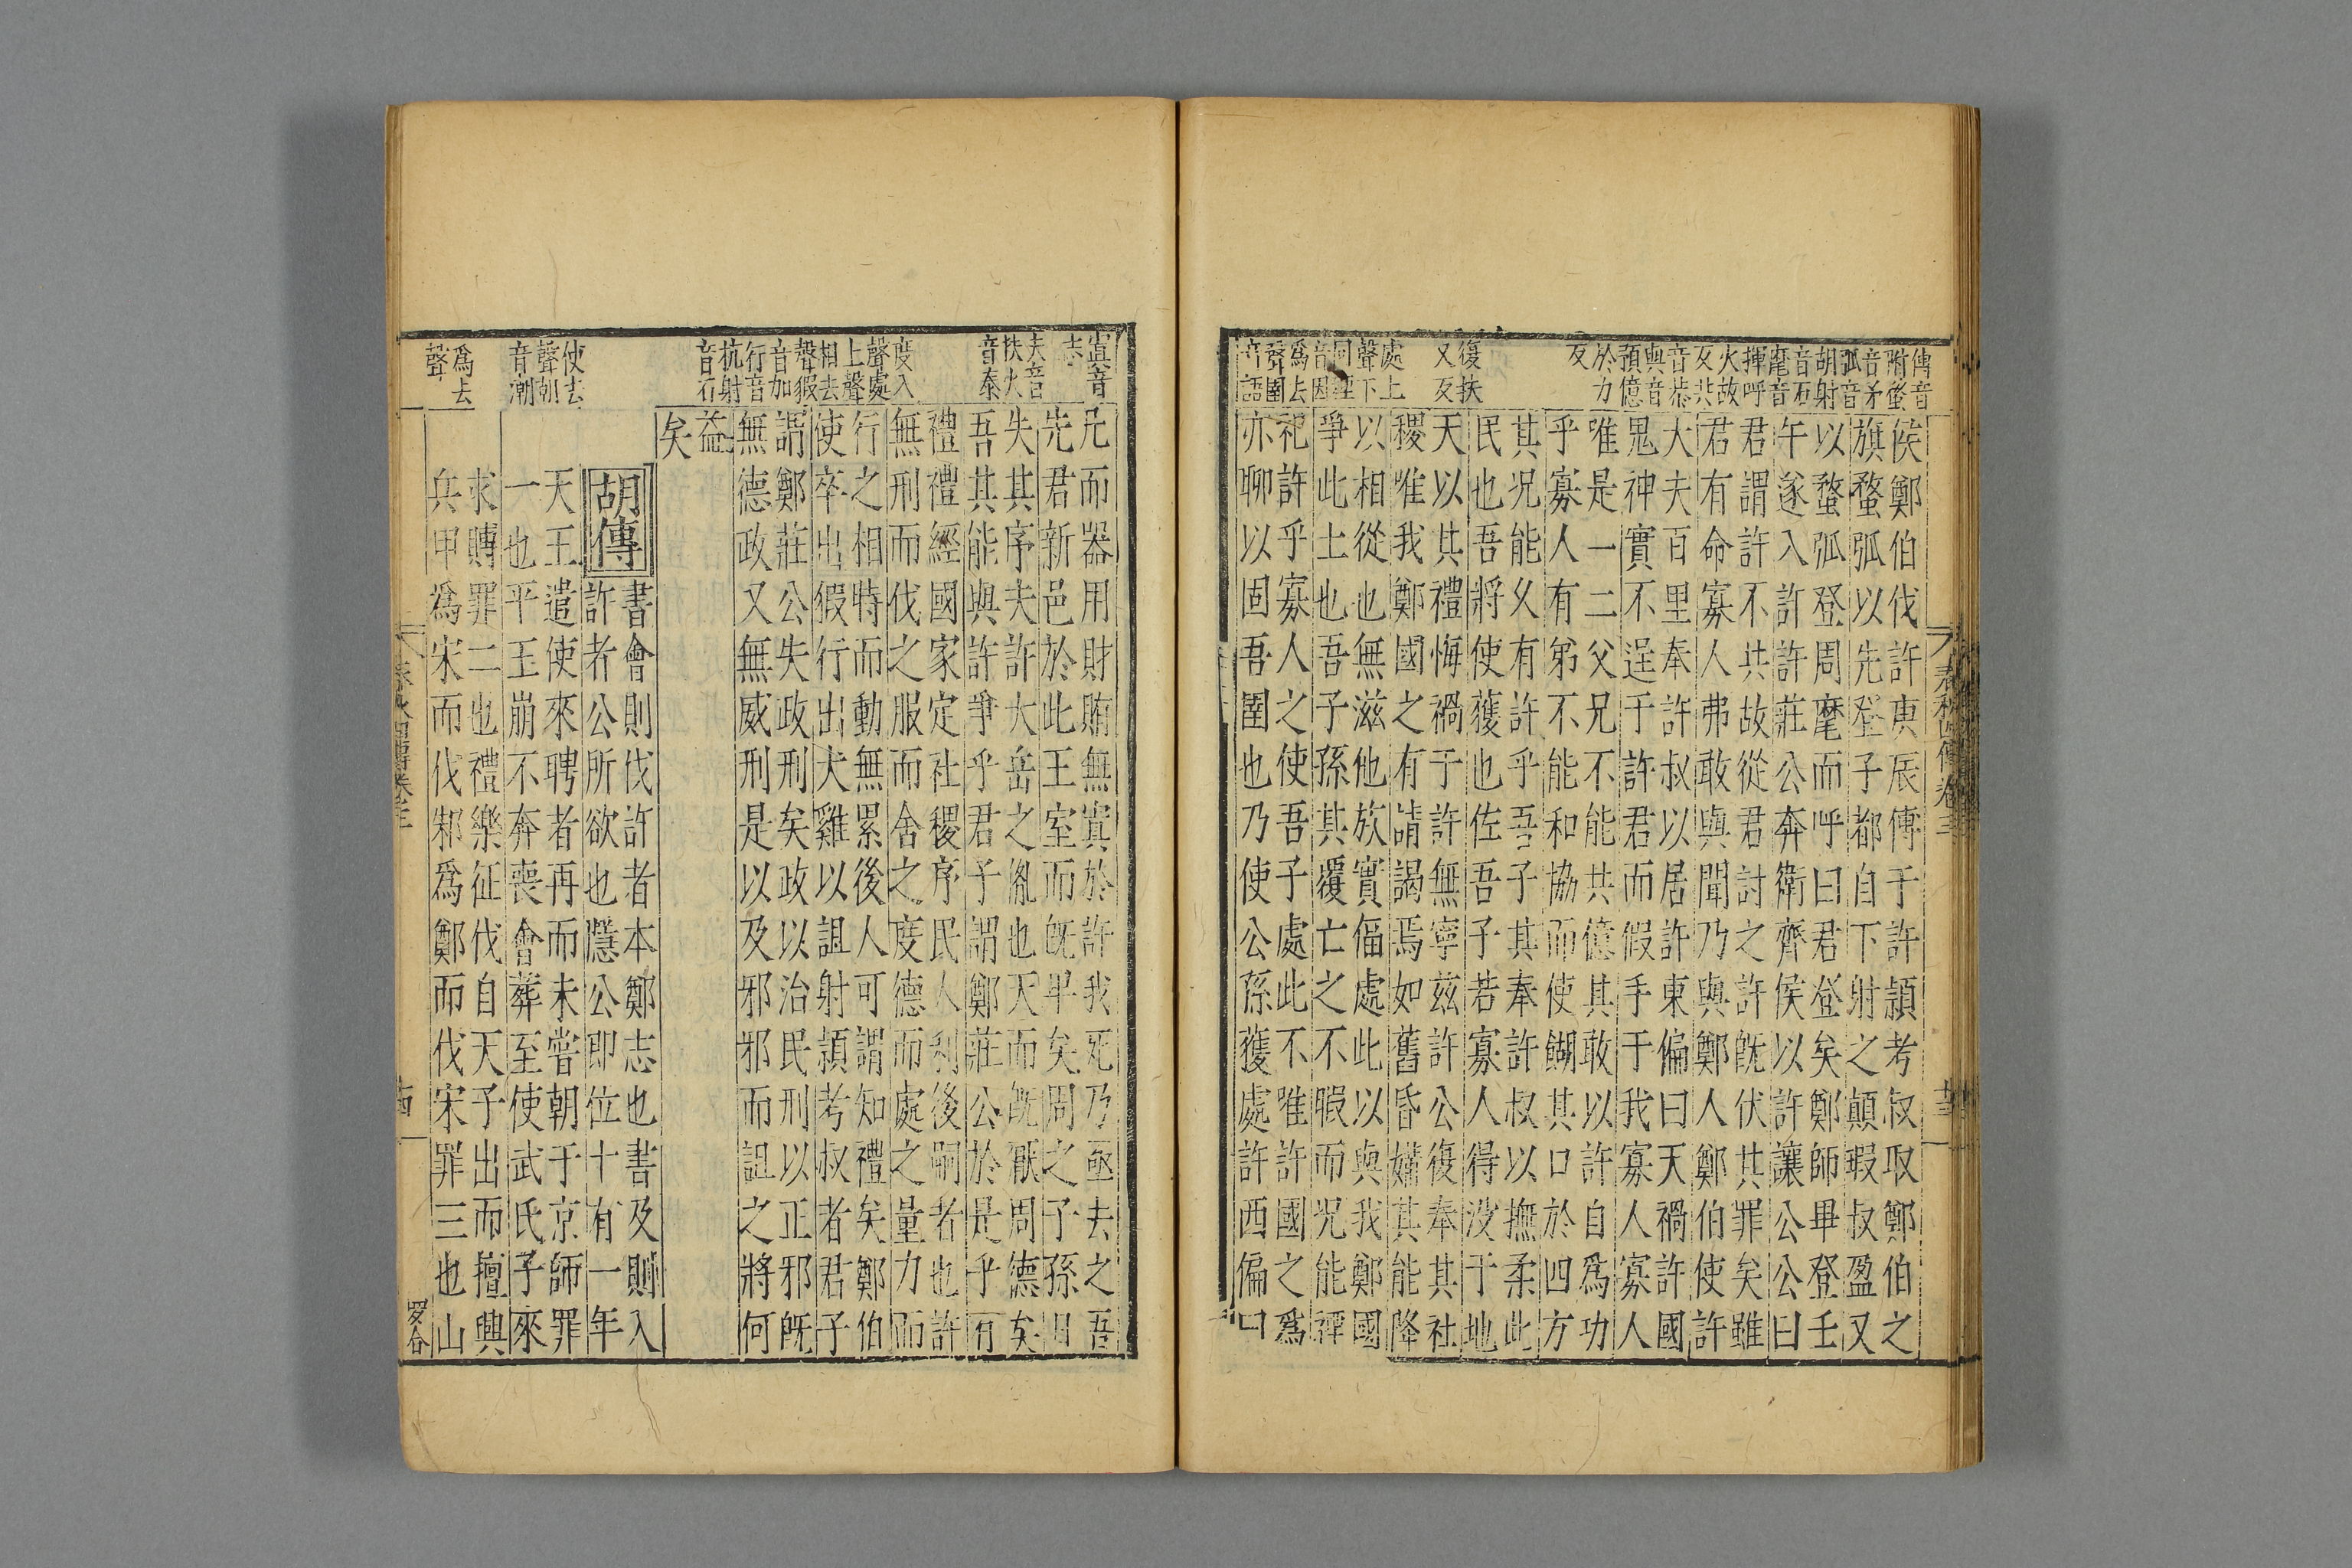 傳音
附蝥
音矛
弧音
胡射
音石
麾音
揮呼
火故
反共
音恭
與音
預億
於力
反
復扶
又反
處上
聲下
同禋
音因
爲去
聲圉
音語
侯鄭伯伐許庚辰傅于許潁考叔取鄭伯之
旗蝥弧以先登子都自下射之顛瑕叔盈又
以蝥弧登周麾而呼曰君登矣鄭師畢登壬
午遂入許許莊公奔衛齊侯以許讓公公曰
君謂許不共故從君討之許旣伏其罪矣雖
君有命寡人弗敢與聞乃與鄭人鄭伯使許
大夫百里奉許叔以居許東偏曰天禍許國
鬼神實不逞于許君而假手于我寡人寡人
唯是一二父兄不能共億其敢以許自爲功
乎寡人有弟不能和協而使餬其口於四方
其況能久有許乎吾子其奉許叔以撫柔此
民也吾將使獲也佐吾子若寡人得沒于地
天以其禮悔禍于許無寧茲許公復奉其社
稷唯我鄭國之有請謁焉如舊昏媾其能降
以相從也無滋他族實偪處此以與我鄭國
爭此土也吾子孫其覆亡之不暇而況能禋
祀許乎寡人之使吾子處此不唯許國之爲
亦聊以固吾圉也乃使公孫獲處許西偏曰
春秋四傳卷三
寘音
志
夫音
扶大
音泰
度入
聲處
上聲
相去
聲假
音加
行音
杭射
音石
使去
聲朝
音潮
爲去
聲
凡而器用財賄無寘於許我死乃亟去之吾
先君新邑於此王室而旣卑矣周之子孫日
失其序夫許大岳之胤也天而旣厭周德矣
吾其能與許爭乎君子謂鄭莊公於是乎有
禮禮經國家定社稷序民人利後嗣者也許
無刑而伐之服而舍之度德而處之量力而
行之相時而動無累後人可謂知禮矣鄭伯
使卒出豭行出犬雞以詛射潁考叔者君子
謂鄭莊公失政刑矣政以治民刑以正邪旣
無德政又無威刑是以及邪邪而詛之將何
益
矣
胡傳
書會則伐許者本鄭志也書及則入
許者公所欲也隱公即位十有一年
天王遣使來聘者再而未嘗朝于京師罪
一也平王崩不奔喪會葬至使武氏子來
求賻罪二也禮樂征伐自天子出而擅興
兵甲爲宋而伐邾爲鄭而伐宋罪三也山
春秋四傳卷三
十四